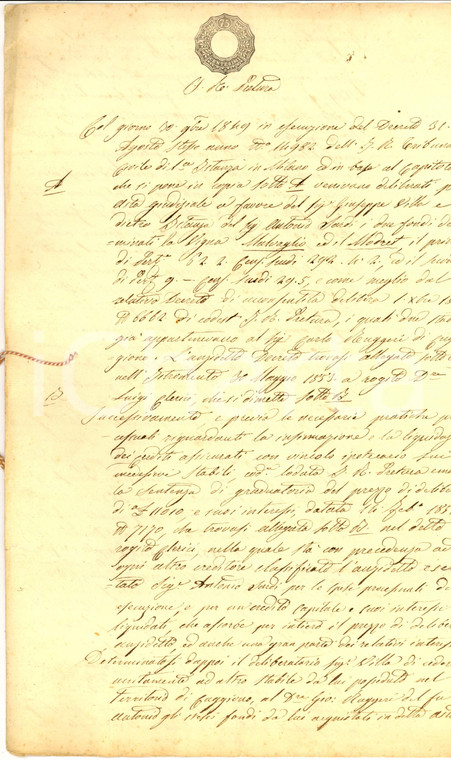 I. R. Pretura
Col giorno 30 9bre 1849 in esecuzione del Decreto 31
Agosto stesso anno N° 14982 dell' I. R. Tribuna
Civile di 1a Istanza in Milano ed in base al Capitola
che si pone in copia sotto A venivano deliberati p
A
asta giudiziale a favore del Sig. Giuseppe Villa e
dietro Istanza del Sig Antonio i due fondi de
minati la Vigna Malvaglio ed il il pri
di Pert. 52 2. Cens. Scudi 292. N° 2, ed il
di Pert. 9. Cens. Scudi 29. 5, e come meglio dal
relativo Decreto di delibera 1 Xbre 18
N 6662 di codest' I. R. Pretura, i quali due
già appartenevano al Sig Carlo Maggi di Cug
giono. L'anzidetto Decreto trovasi allegato sotto
nell' Istromento 30 Maggio 1853 a rogito Dre
B
Luigi Clerici, che si dimette sotto B
Successivamente e previe le necessarie pratiche pr
cessuali riguardanti la insinuazione e la liquidaz
dei crediti assicurati con vincolo ipotecario sui
stabili lodata I. R. Pretura ema
la Sentenza di graduatoria del prezzo di delibe
di £ 11010 e suoi interessi, datata 16 Feb° 185
N 7170, che trovasi allegata sotto nel detto
rogito Clerici, nella quale sta con precedenza ad
ogni altro creditore classificato l'anzidetto ese
tato Sig. Antonio per le spese processuali de
esecuzione e per un credito capitale e suoi interessi
liquidati, che assorbe per intero il prezzo di deliber
anzidetto, ed anche una gran parte dei relativi interess
Determinatosi dappoi il deliberatario Sig. Villa di ceder
unitamente ad altro stabile da lui posseduto nel
territorio di Cuggiono, al Dre Gio. Maggi del fu
Antonio gli stessi fondi da lui acquistati in detta asta